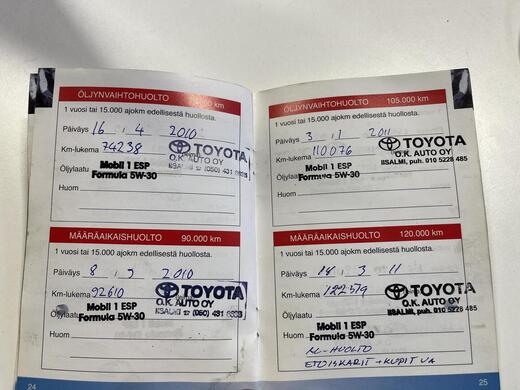 ÖLJYNVAIHTOHUOLTO 75.000 km
1 vuosi tai 15.000 ajokm edellisestä huollosta.
Päiväys 16 . 4 2010
Km-lukema 74238
TOYOTA
O.K. AUTO OY
Öljylaatu Mobil 1 ESP
Formula 5W-30
Huom
MÄÄRÄAIKAISHUOLTO 90.000 km
1 vuosi tai 15.000 ajokm edellisestä huollosta.
Päiväys 8 2010
Km-lukema 92610
TOYOTA
O.K. AUTO OY
Öljylaatu Mobil 1 ESP
Formula 5W-30
Huom
24
ÖLJYNVAIHTOHUOLTO 105.000 km
1 vuosi tai 15.000 ajokm edellisestä huollosta.
Päiväys 3 . 1 2011
Km-lukema 110076
TOYOTA
O.K. AUTO OY
IISALMI, puh. 010 5228 485
Öljylaatu Mobil 1 ESP
Formula 5W-30
Huom
MÄÄRÄAIKAISHUOLTO 120.000 km
1 vuosi tai 15.000 ajokm edellisestä huollosta.
Päiväys 14 . 3 . 11
Km-lukema 122579
TOYOTA
O.K. AUTO OY
IISALMI, puh. 010 5228 485
Öljylaatu Mobil 1 ESP
Formula 5W-30
Huom
-HUOLTO
ETUISKARIT + KUPIT VA
25